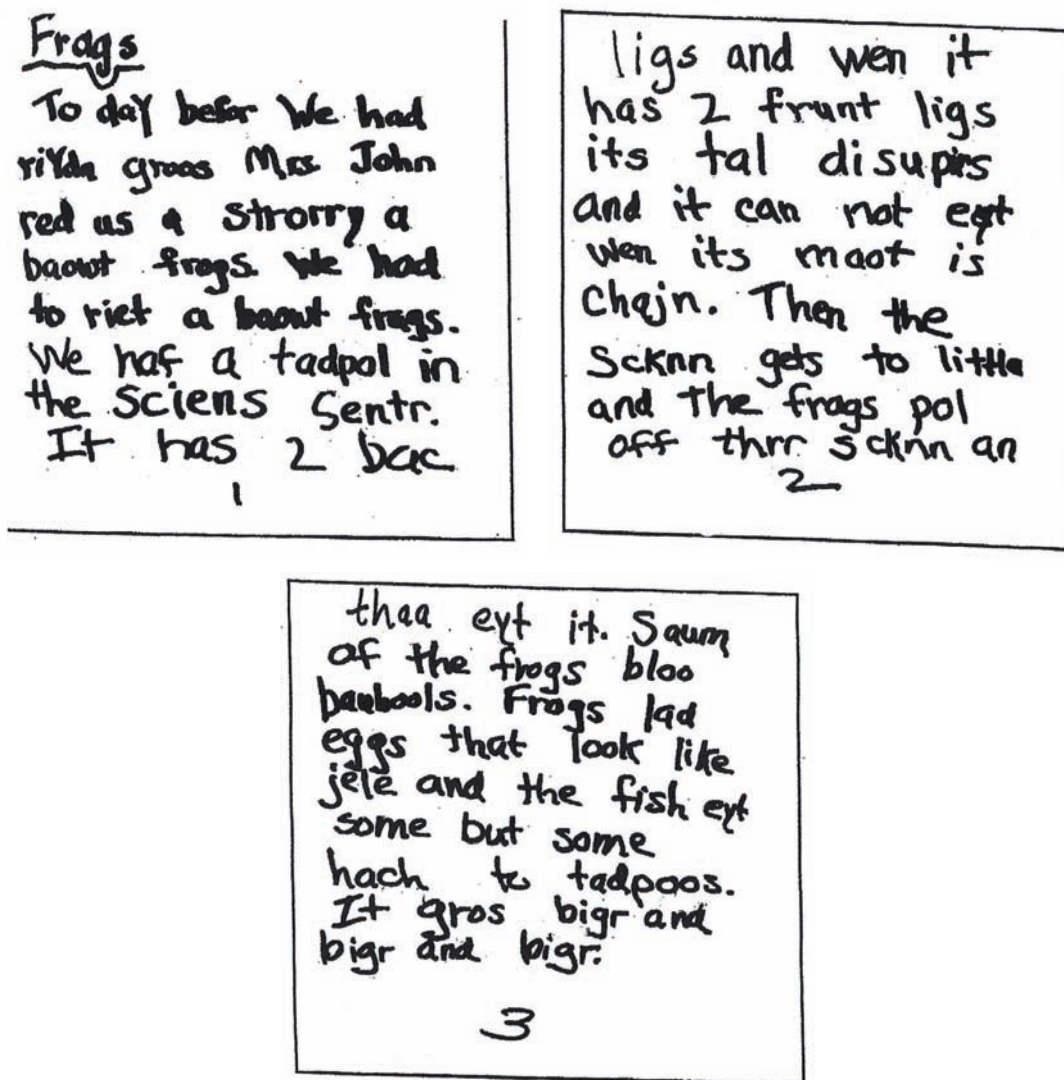 Frags
To day befor We had
riYda groos Mrs. John
red us a strorry a
baowt frogs. We had
to riet a baowt frags.
We haf a tadpol in
the sciens sentr.
It has 2 bac
1
ligs and wen it
has 2 frunt ligs
its tal disupirs
and it can not eyt
wen its maot is
chajn. Then the
scknn gets to little
and the frogs pol
off thrr scknn an
2
thaa eyt it. Saum
of the frogs bloo
baubools. Frogs lad
eggs that look like
jele and the fish eyt
some but some
hach to tadpoos.
It gros bigr and
bigr and bigr.
3